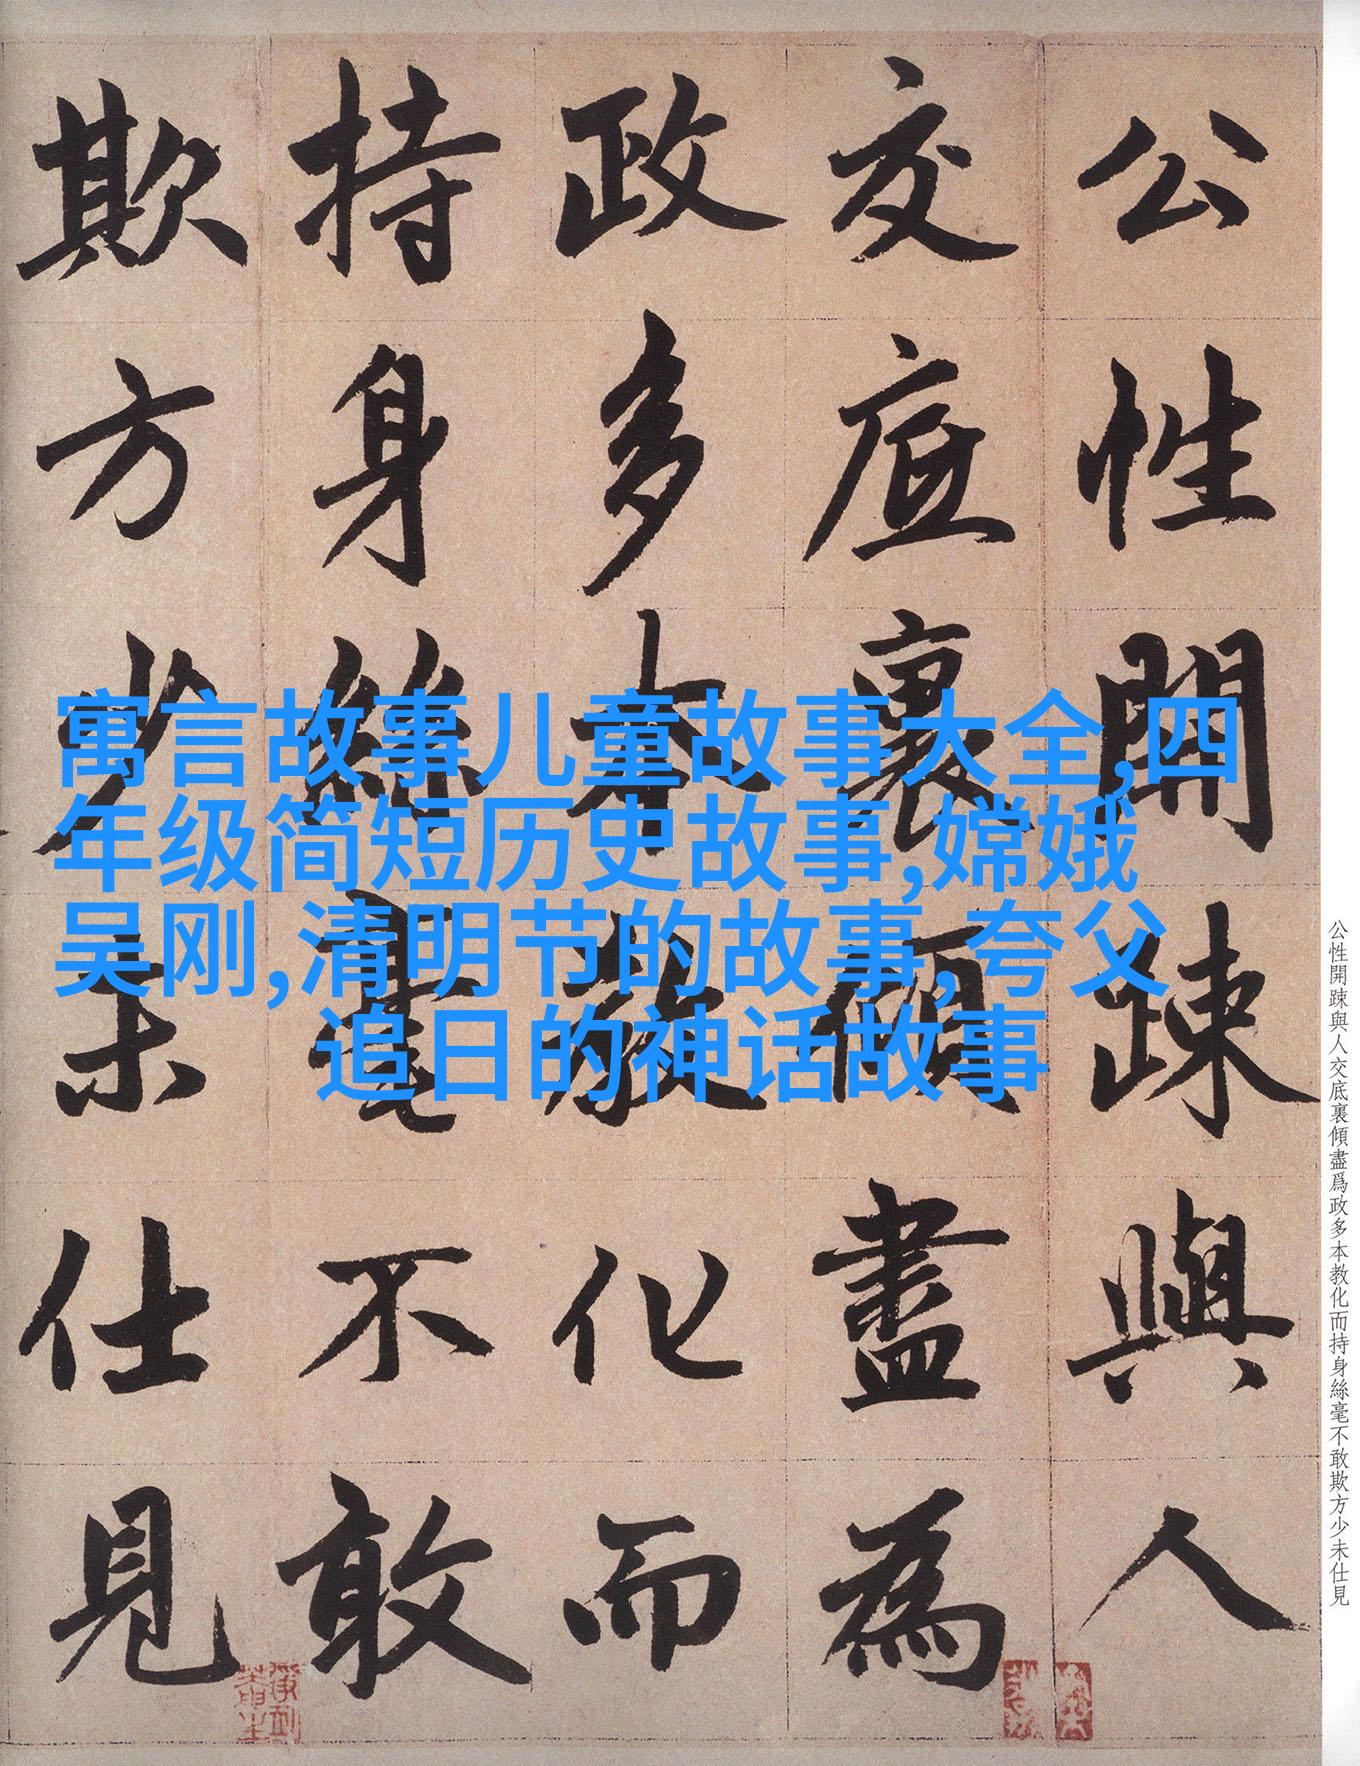 公性開踈與人
交底裏傾盡為
政多本教化而
持身絲毫不敢
欺方少未仕見
寓言故事儿童故事大全,四
年级简短历史故事,嫦娥
吴刚,清明节的故事,夸父
追日的神话故事
公性開踈與人交底裏傾盡爲政多本教化而持身絲毫不敢欺方少未仕見